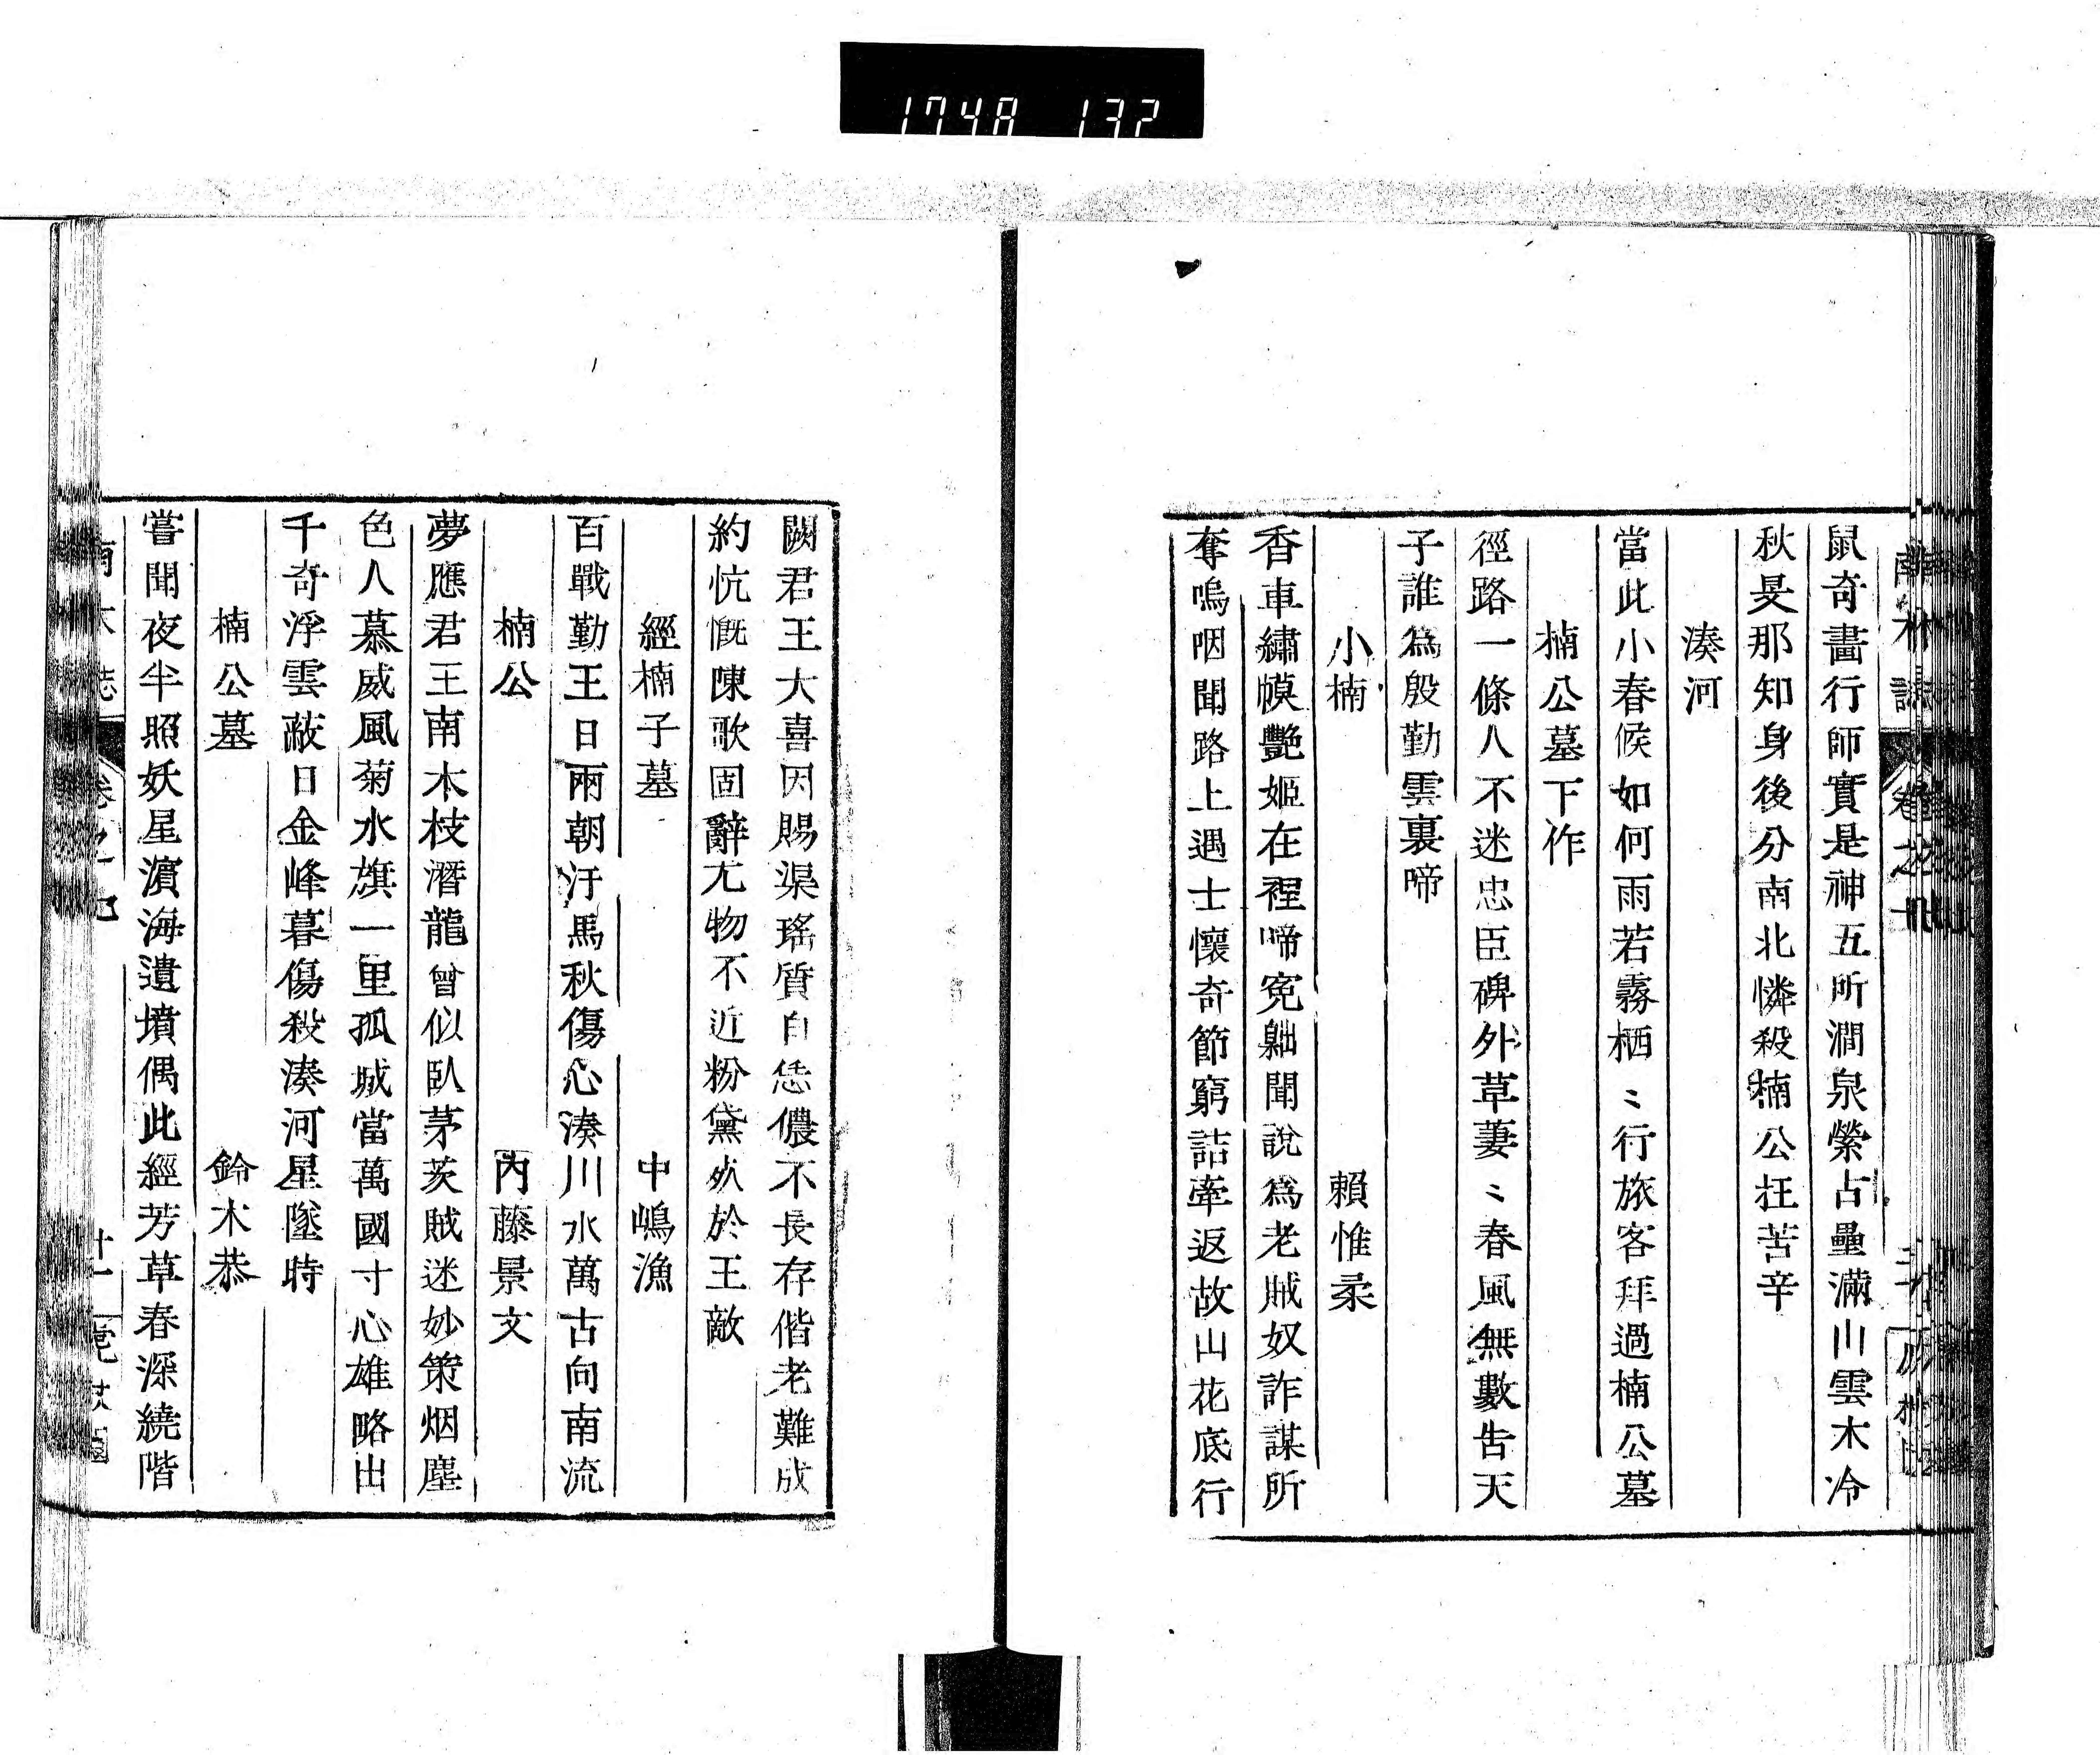 1748 132
鼠奇畵行師實是神五所澗泉縈占壘滿山雲木冷
秋旻那知身後分南北憐殺楠公抂苦辛
湊河
當此小春候如何雨若霧栖〻行旅客拜過楠公墓
楠公墓下作
徑路一條人不迷忠臣碑外草萋〻春風無數告天
子誰為殷勤雲裏啼
小楠　賴惟柔
香車繡幙艷姬在裡啼寃聞說爲老賊奴詐謀所
奪嗚咽聞路上遇士懷奇節窮詰牽返故山花底行
闕君王大喜因賜渠瑤質自恁儂不長存偕老難成
約忼慨陳歌固辭尤物不近粉黛於王敵
經楠子墓　中嶋漁
百戰勤王日兩朝汗馬秋傷心湊川水萬古向南流
楠公　內藤景文
夢應君王南木枝潛龍曾似臥茅茨賊迷妙策烟塵
色人慕威風菊水旗一里孤城當萬國寸心雄略出
千奇浮雲蔽日金峰暮傷殺湊河星墜時
楠公墓　鈴木恭
嘗聞夜半照妖星濵海遺墳偶此經芳草春深繞階
南木誌　卷之九　廿一